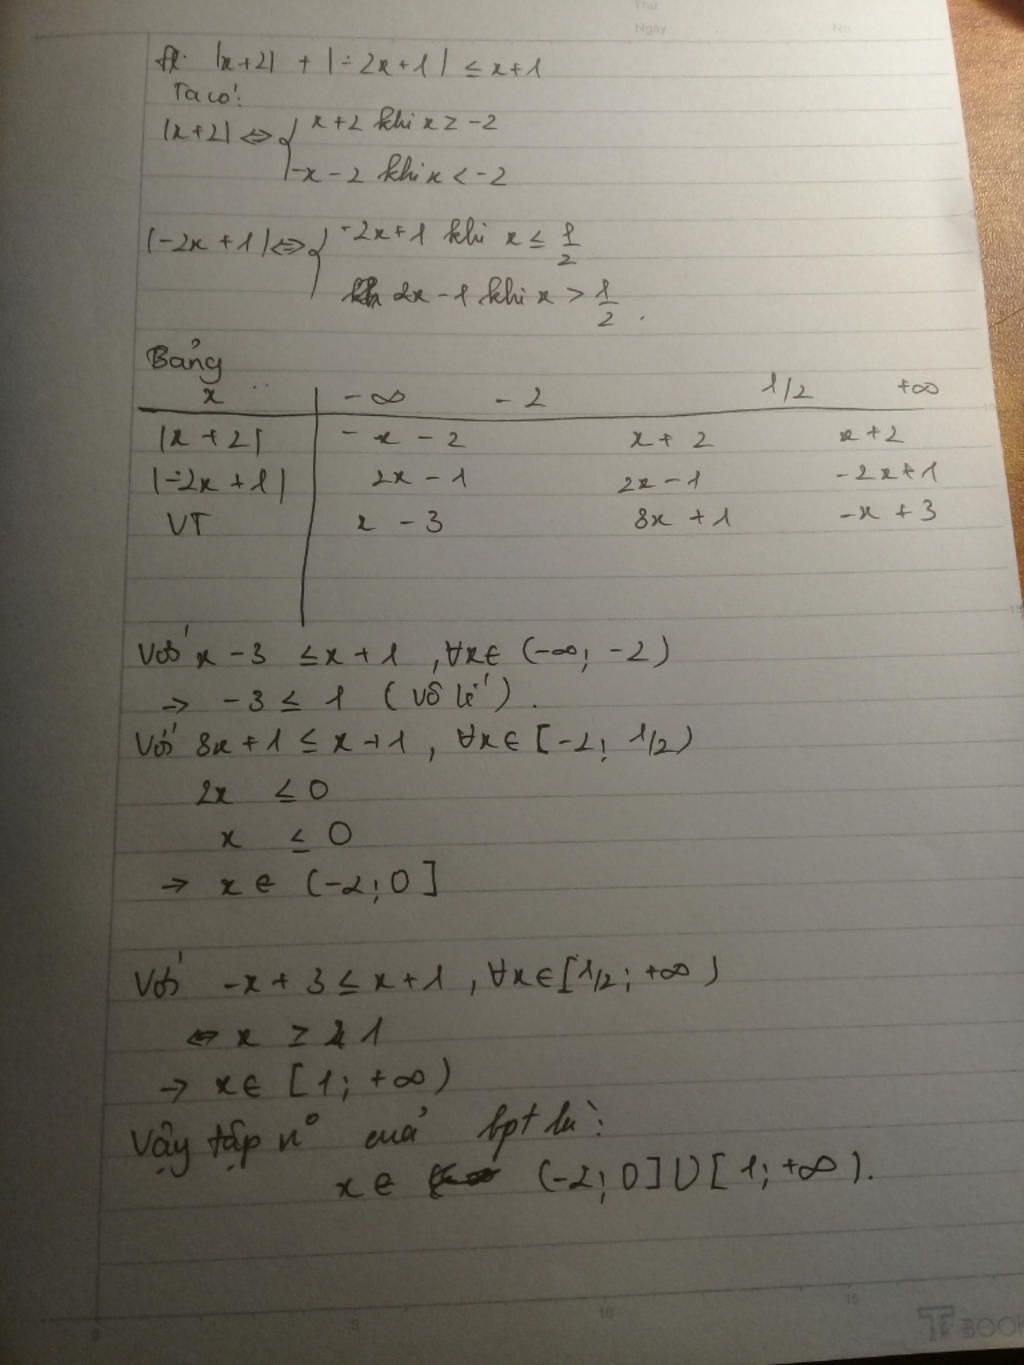 Thứ
Ngày No.
|x+2| + |-2x+1| ≤ x+1
Ta có:
|x+2| ⇔ { x+2 khi x ≥ -2
-x-2 khi x < -2
|-2x+1| ⇔ { -2x+1 khi x ≤ 1/2
2x-1 khi x > 1/2.
Bảng
x -∞ -2 1/2 +∞
|x+2| -x-2 x+2 x+2
|-2x+1| 2x-1 2x-1 -2x+1
VT x-3 3x+1 -x+3
Với x-3 ≤ x+1, ∀x∈ (-∞; -2)
→ -3 ≤ 1 (vô lí).
Với 3x+1 ≤ x+1, ∀x∈ [-2; 1/2)
2x ≤ 0
x ≤ 0
→ x∈ (-2; 0]
Với -x+3 ≤ x+1, ∀x∈ [1/2; +∞)
⇔ x ≥ 1
→ x∈ [1; +∞)
Vậy tập n° của bpt là:
x∈ (-2; 0] U [1; +∞).
0 5 10 15
BOOK